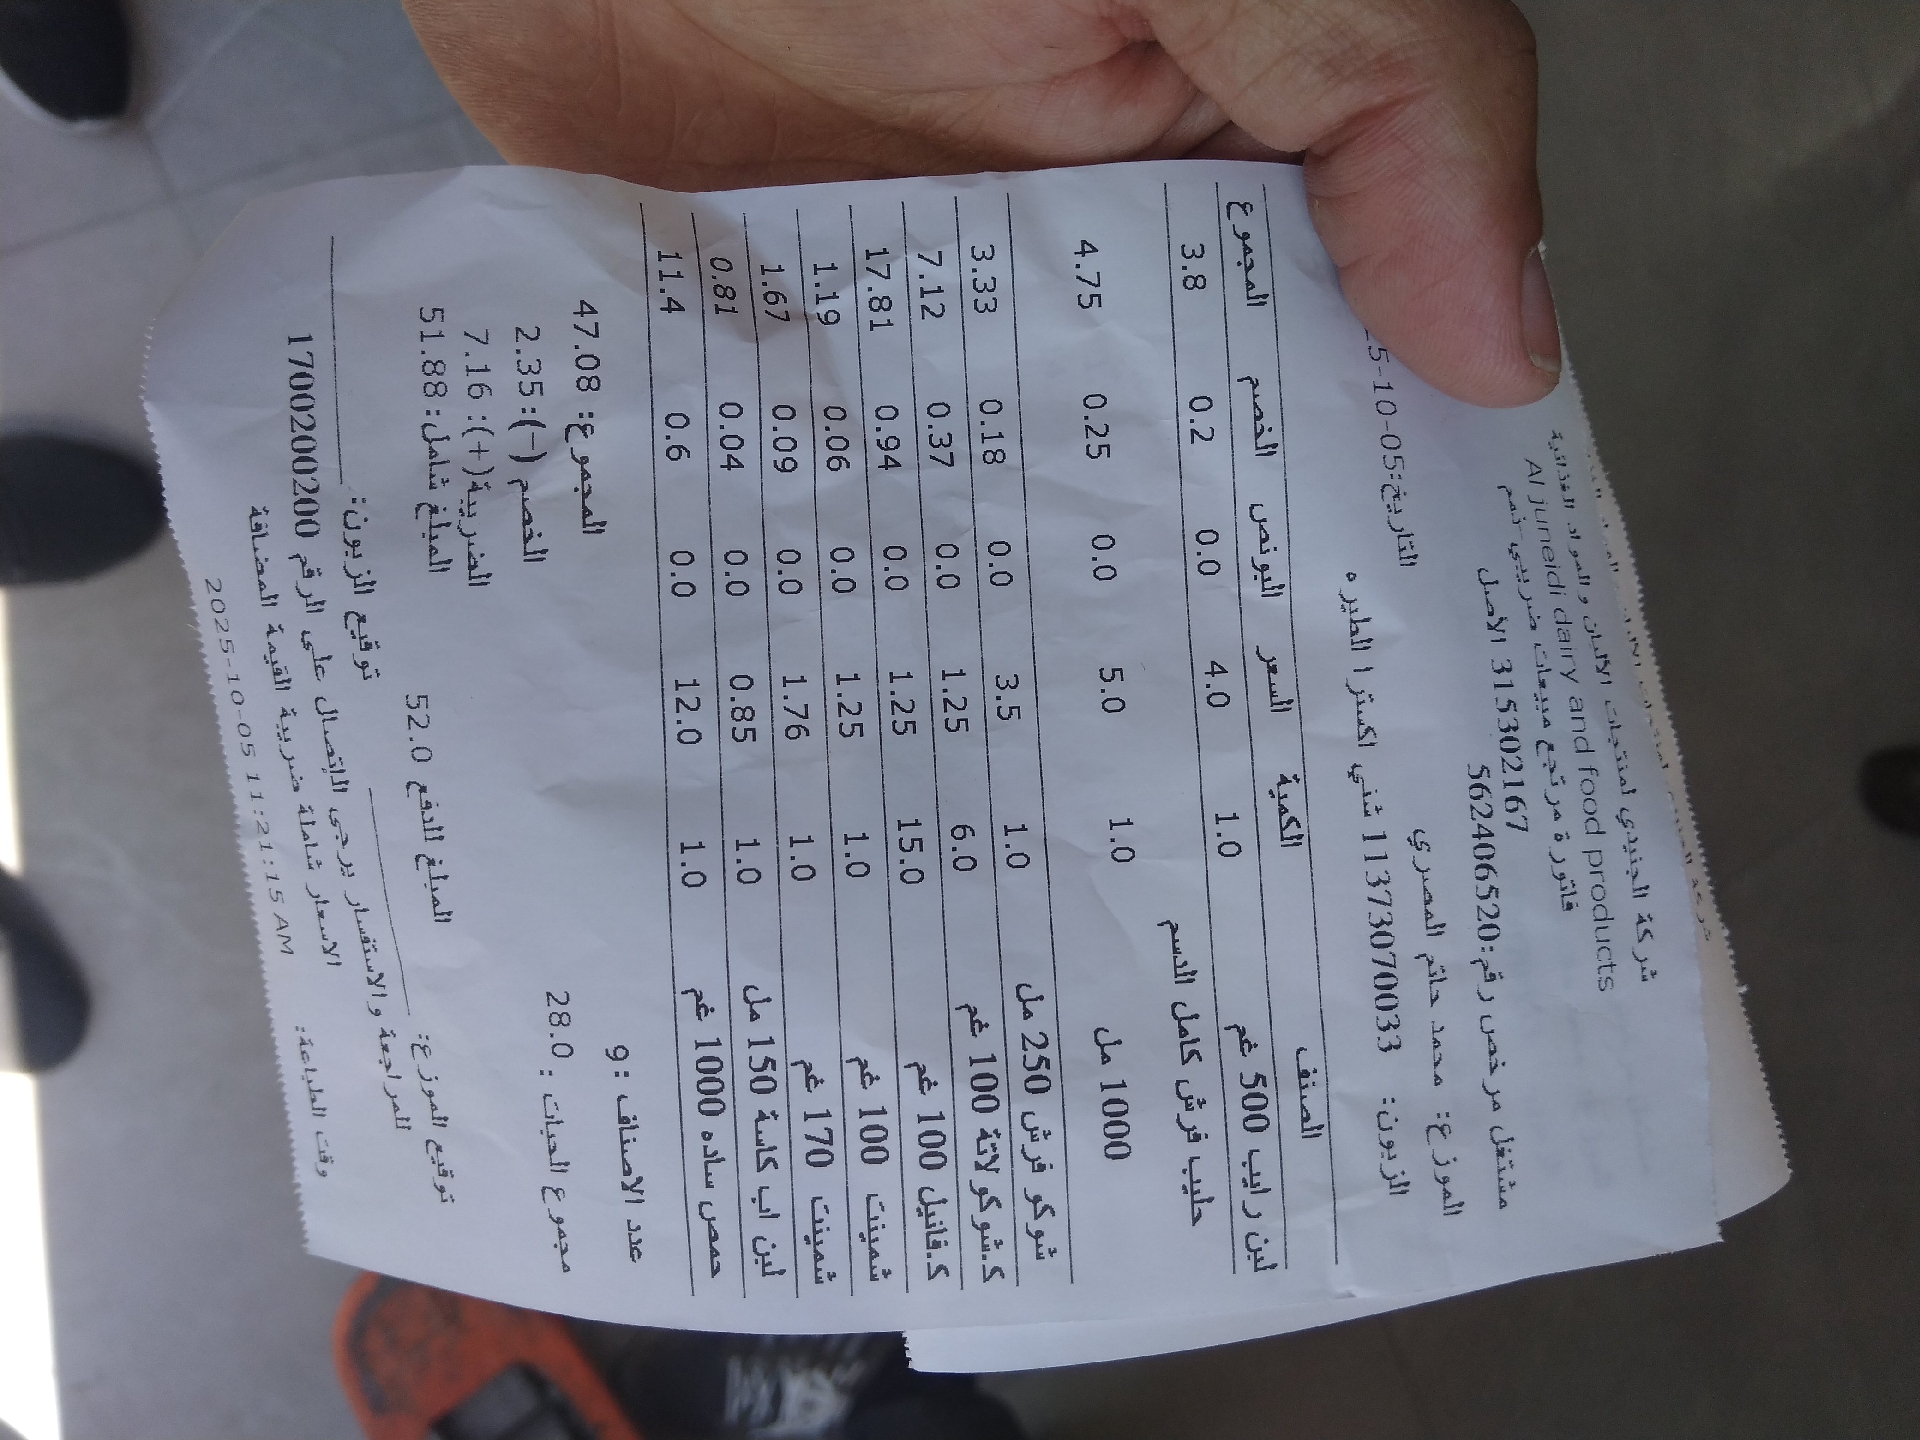 شركة الجنيدي لمنتجات الألبان والمواد الغذائية
Al juneidi dairy and food products
فاتورة مرتجع مبيعات ضريبي-نمم
315302167 الأصل
مشتغل مرخص رقم:562406520
الموزع: محمد حاتم المصري التاريخ:5-10-05
الزبون: 11373070033 شني اكسترا الطيره
الصنف الكمية السعر البونص الخصم المجموع
لبن رايب 500 غم 1.0 4.0 0.0 0.2 3.8
حليب فرش كامل الدسم
1000 مل 1.0 5.0 0.0 0.25 4.75
شوكو فرش 250 مل 1.0 3.5 0.0 0.18 3.33
ك.شوكولاتة 100 غم 6.0 1.25 0.0 0.37 7.12
ك.فانيل 100 غم 15.0 1.25 0.0 0.94 17.81
شمينت 100 غم 1.0 1.25 0.0 0.06 1.19
شمينت 170 غم 1.0 1.76 0.0 0.09 1.67
لبن اب كاسة 150 مل 1.0 0.85 0.0 0.04 0.81
حمص ساده 1000 غم 1.0 12.0 0.0 0.6 11.4
عدد الاصناف :9 المجموع: 47.08
مجموع الحبات : 28.0 الخصم (-):2.35
الضريبة(+):7.16
المبلغ الدفع 52.0 المبلغ شامل:51.88
توقيع الموزع: توقيع الزبون:
للمراجعة والاستفسار يرجى الإتصال على الرقم 1700200200
الاسعار شاملة ضريبة القيمة المضافة
وقت الطباعة: 2025-10-05 11:21:15 AM